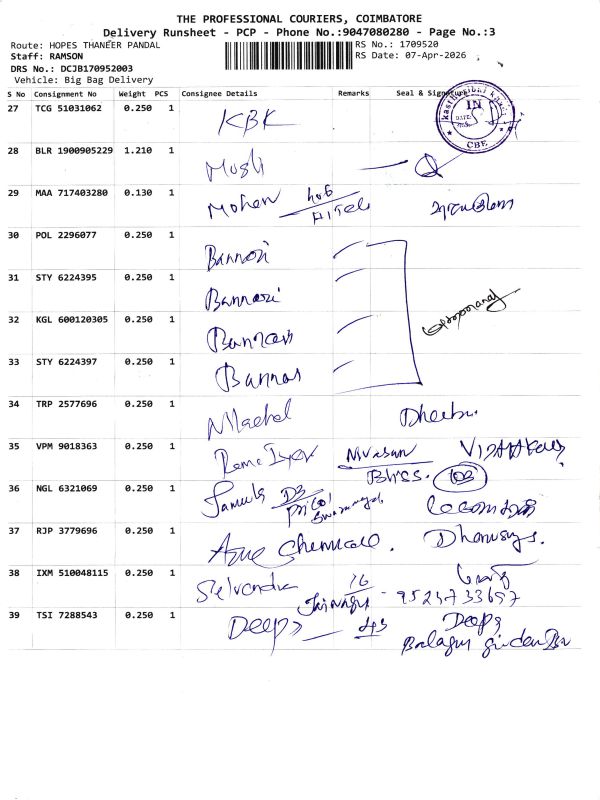 THE PROFESSIONAL COURIERS, COIMBATORE
Delivery Runsheet - PCP - Phone No.:9047080280 - Page No.:3
Route: HOPES THANEER PANDAL
RS No.: 1709520
Staff: RAMSON
RS Date: 07-Apr-2026
DRS No.: DCJB170952003
Vehicle: Big Bag Delivery
S No Consignment No Weight PCS Consignee Details Remarks Seal & Signature
27 TCG 51031062 0.250 1 KBK
IN
CBE
28 BLR 1900905229 1.210 1
29 MAA 717403280 0.130 1 Mohan
30 POL 2296077 0.250 1 Bannari
31 STY 6224395 0.250 1 Bannari
32 KGL 600120305 0.250 1 Bannari
33 STY 6224397 0.250 1 Bannari
34 TRP 2577696 0.250 1
35 VPM 9018363 0.250 1 Rama Iyer Nivasan
36 NGL 6321069 0.250 1 D3
37 RJP 3779696 0.250 1 Chemicals.
38 IXM 510048115 0.250 1 16
39 TSI 7288543 0.250 1 Deepa 43 Deepa